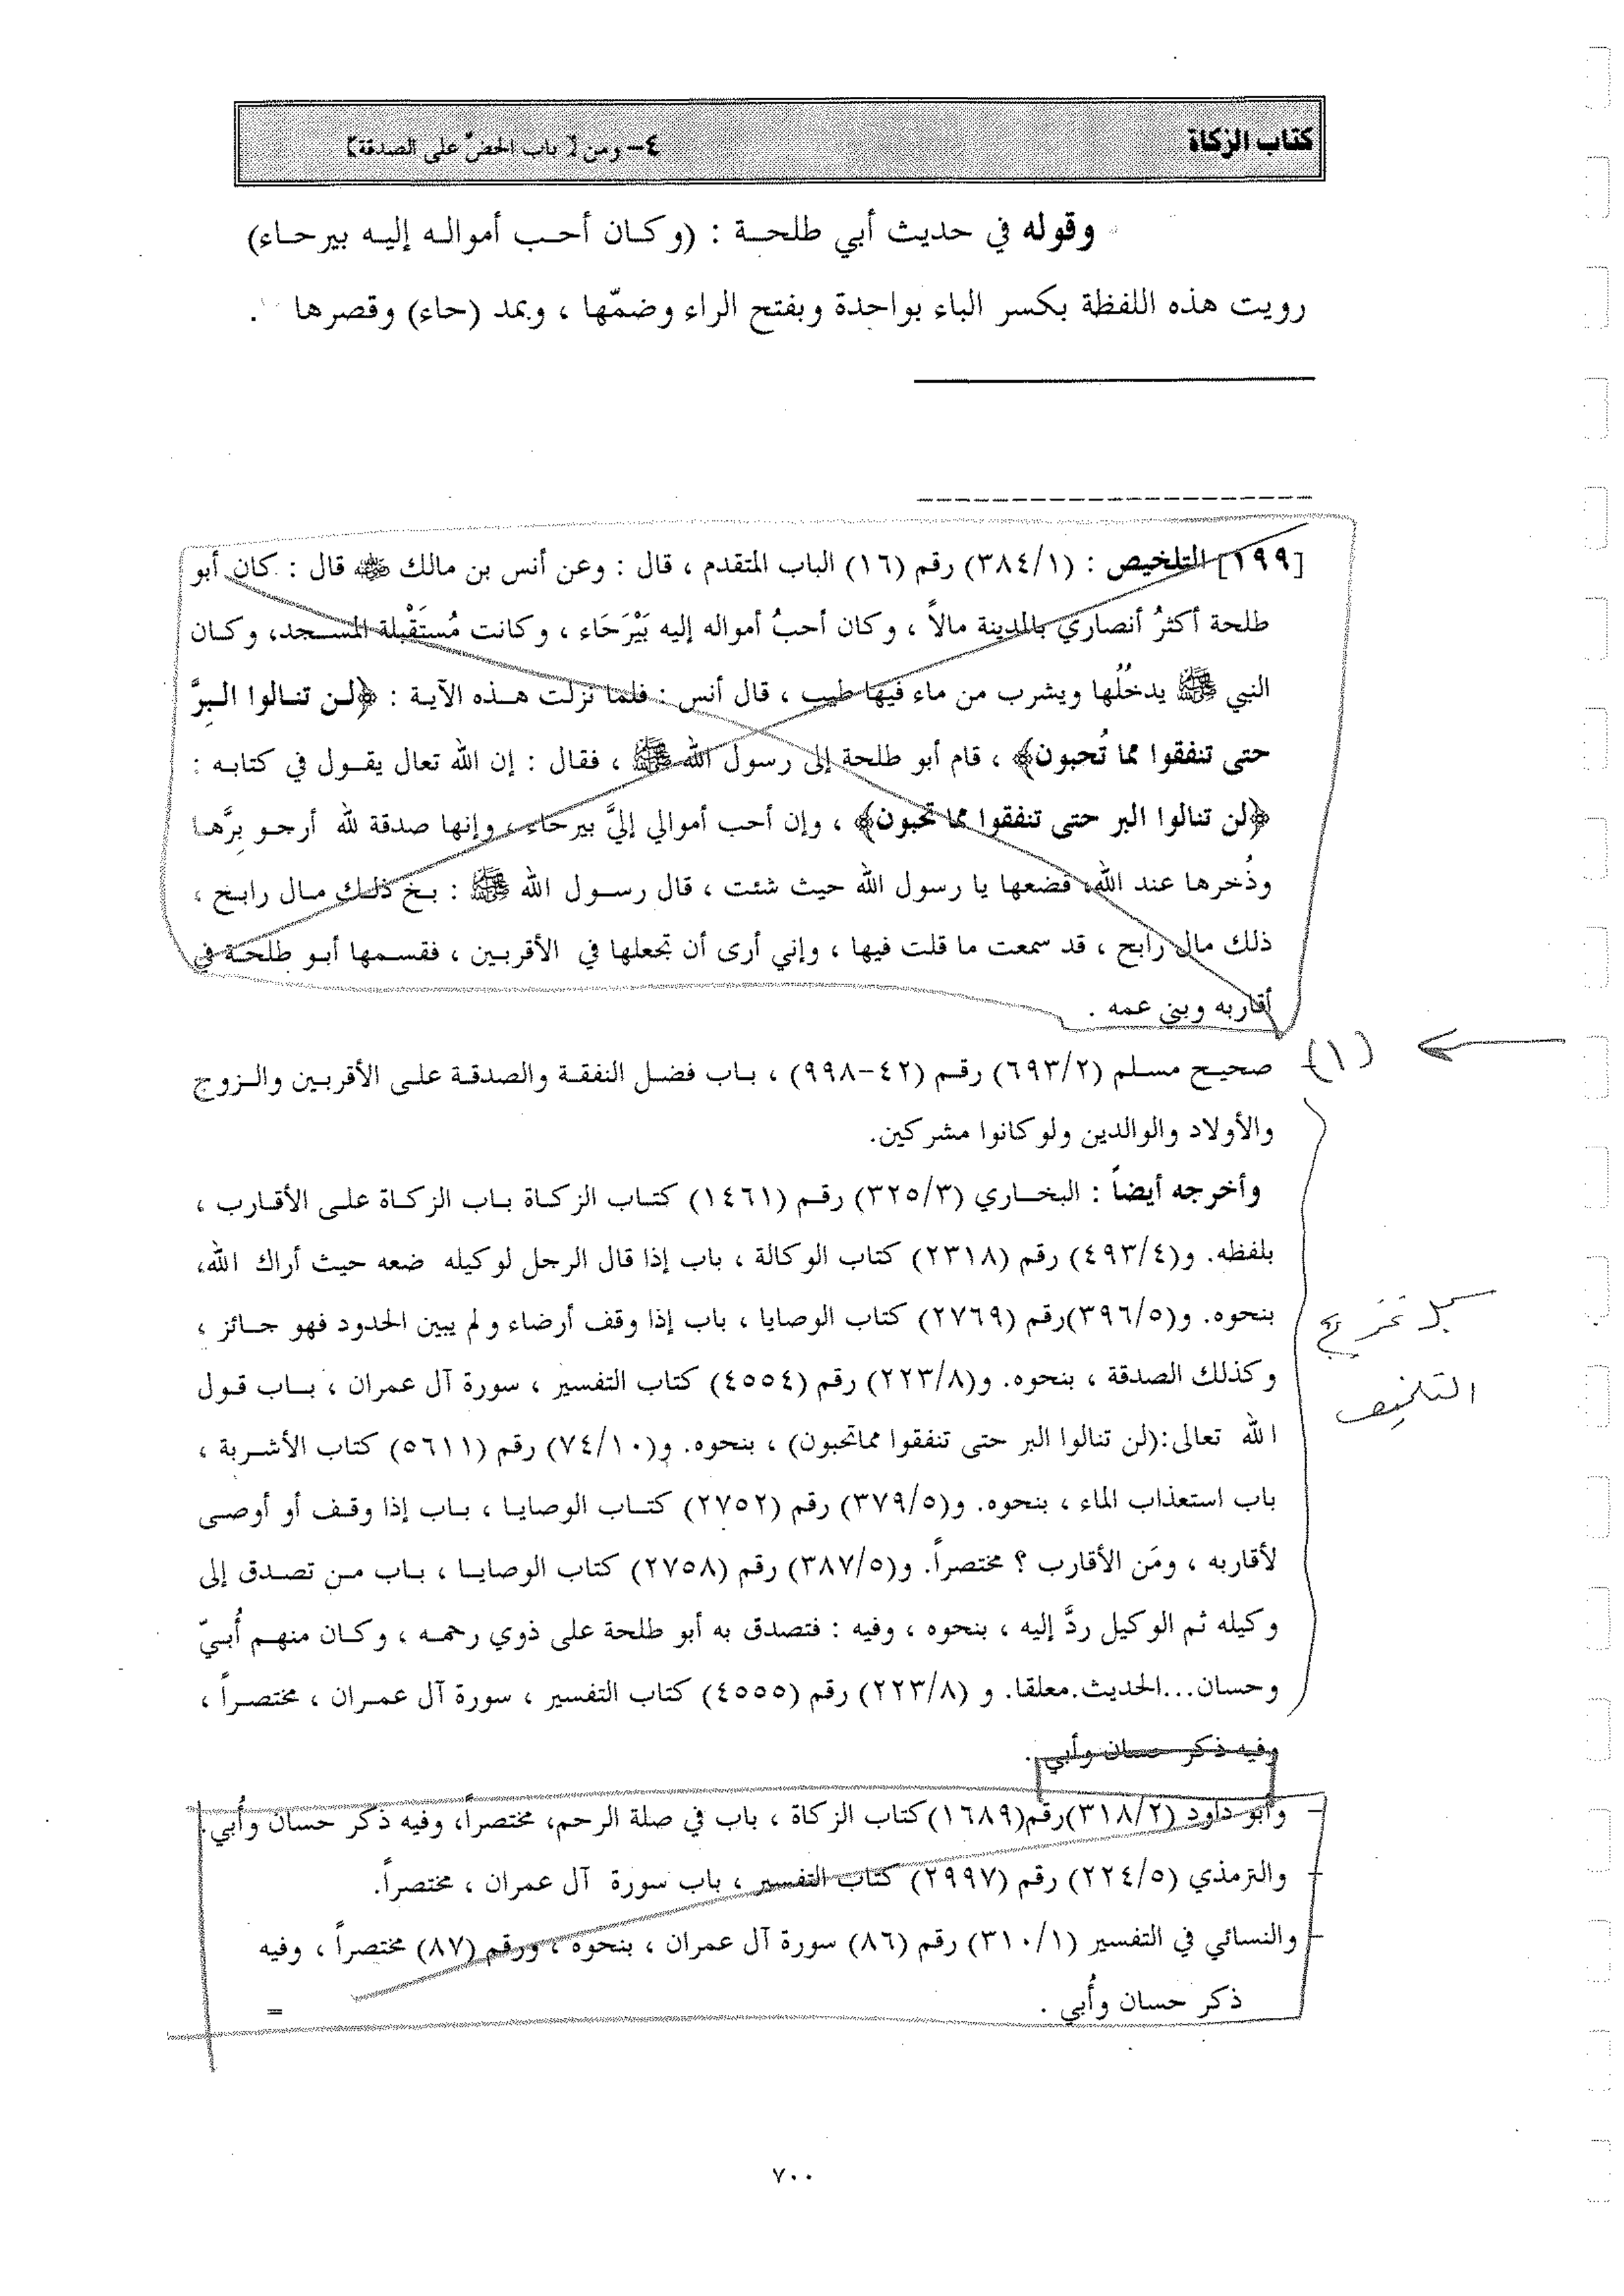 كتاب الزكاة
٤- ومن [ باب الحضّ على الصدقة]
وقوله في حديث أبي طلحة : (وكان أحب أمواله إليه بيرحاء)
رويت هذه اللفظة بكسر الباء بواحدة وبفتح الراء وضمّها ، وبمد (حاء) وقصرها .
[١٩٩] التلخيص : (٣٨٤/١) رقم (١٦) الباب المتقدم ، قال : وعن أنس بن مالك ﷺ قال : كان أبو
طلحة أكثرُ أنصاري بالمدينة مالاً ، وكان أحبُ أمواله إليه بَيْرَحَاء ، وكانت مُستَقْبلة المسجد، وكان
النبي ﷺ يدخُلُها ويشرب من ماء فيها طيب ، قال أنس : فلما نزلت هذه الآية : ﴿لن تنالوا البِرَّ
حتى تنفقوا مما تُحبون﴾ ، قام أبو طلحة إلى رسول الله ﷺ ، فقال : إن الله تعال يقول في كتابه :
﴿لن تنالوا البر حتى تنفقوا مما تحبون﴾ ، وإن أحب أموالي إليَّ بيرحاء ، وإنها صدقة لله أرجو بِرَّها
وذُخرها عند الله، فضعها يا رسول الله حيث شئت ، قال رسول الله ﷺ : بخ ذلك مال رابح ،
ذلك مال رابح ، قد سمعت ما قلت فيها ، وإني أرى أن تجعلها في الأقربين ، فقسمها أبو طلحة في
أقاربه وبني عمه .
(١) صحيح مسلم (٦٩٣/٢) رقم (٤٢-٩٩٨) ، باب فضل النفقة والصدقة على الأقربين والزوج
والأولاد والوالدين ولو كانوا مشركين.
وأخرجه أيضاً : البخاري (٣٢٥/٣) رقم (١٤٦١) كتاب الزكاة باب الزكاة على الأقارب ،
بلفظه. و(٤٩٣/٤) رقم (٢٣١٨) كتاب الوكالة ، باب إذا قال الرجل لوكيله ضعه حيث أراك الله،
بنحوه. و(٣٩٦/٥)رقم (٢٧٦٩) كتاب الوصايا ، باب إذا وقف أرضاء ولم يبين الحدود فهو جائز ،
وكذلك الصدقة ، بنحوه. و(٢٢٣/٨) رقم (٤٥٥٤) كتاب التفسير ، سورة آل عمران ، باب قول
الله تعالى:(لن تنالوا البر حتى تنفقوا مماتحبون) ، بنحوه. و(٧٤/١٠) رقم (٥٦١١) كتاب الأشربة ،
باب استعذاب الماء ، بنحوه. و(٣٧٩/٥) رقم (٢٧٥٢) كتاب الوصايا ، باب إذا وقف أو أوصى
لأقاربه ، ومَن الأقارب ؟ مختصراً. و(٣٨٧/٥) رقم (٢٧٥٨) كتاب الوصايا ، باب من تصدق إلى
وكيله ثم الوكيل ردَّ إليه ، بنحوه ، وفيه : فتصدق به أبو طلحة على ذوي رحمه ، وكان منهم أُبيّ
وحسان...الحديث.معلقا. و (٢٢٣/٨) رقم (٤٥٥٥) كتاب التفسير ، سورة آل عمران ، مختصراً ،
وفيه ذكر حسان وأبي .
تخريج
التلخيص
- وأبو داود (٣١٨/٢)رقم(١٦٨٩)كتاب الزكاة ، باب في صلة الرحم، مختصراً، وفيه ذكر حسان وأُبي.
- والترمذي (٢٢٤/٥) رقم (٢٩٩٧) كتاب التفسير ، باب سورة آل عمران ، مختصراً.
- والنسائي في التفسير (٣١٠/١) رقم (٨٦) سورة آل عمران ، بنحوه ، ورقم (٨٧) مختصراً ، وفيه
ذكر حسان وأُبي .
=
٧٠٠